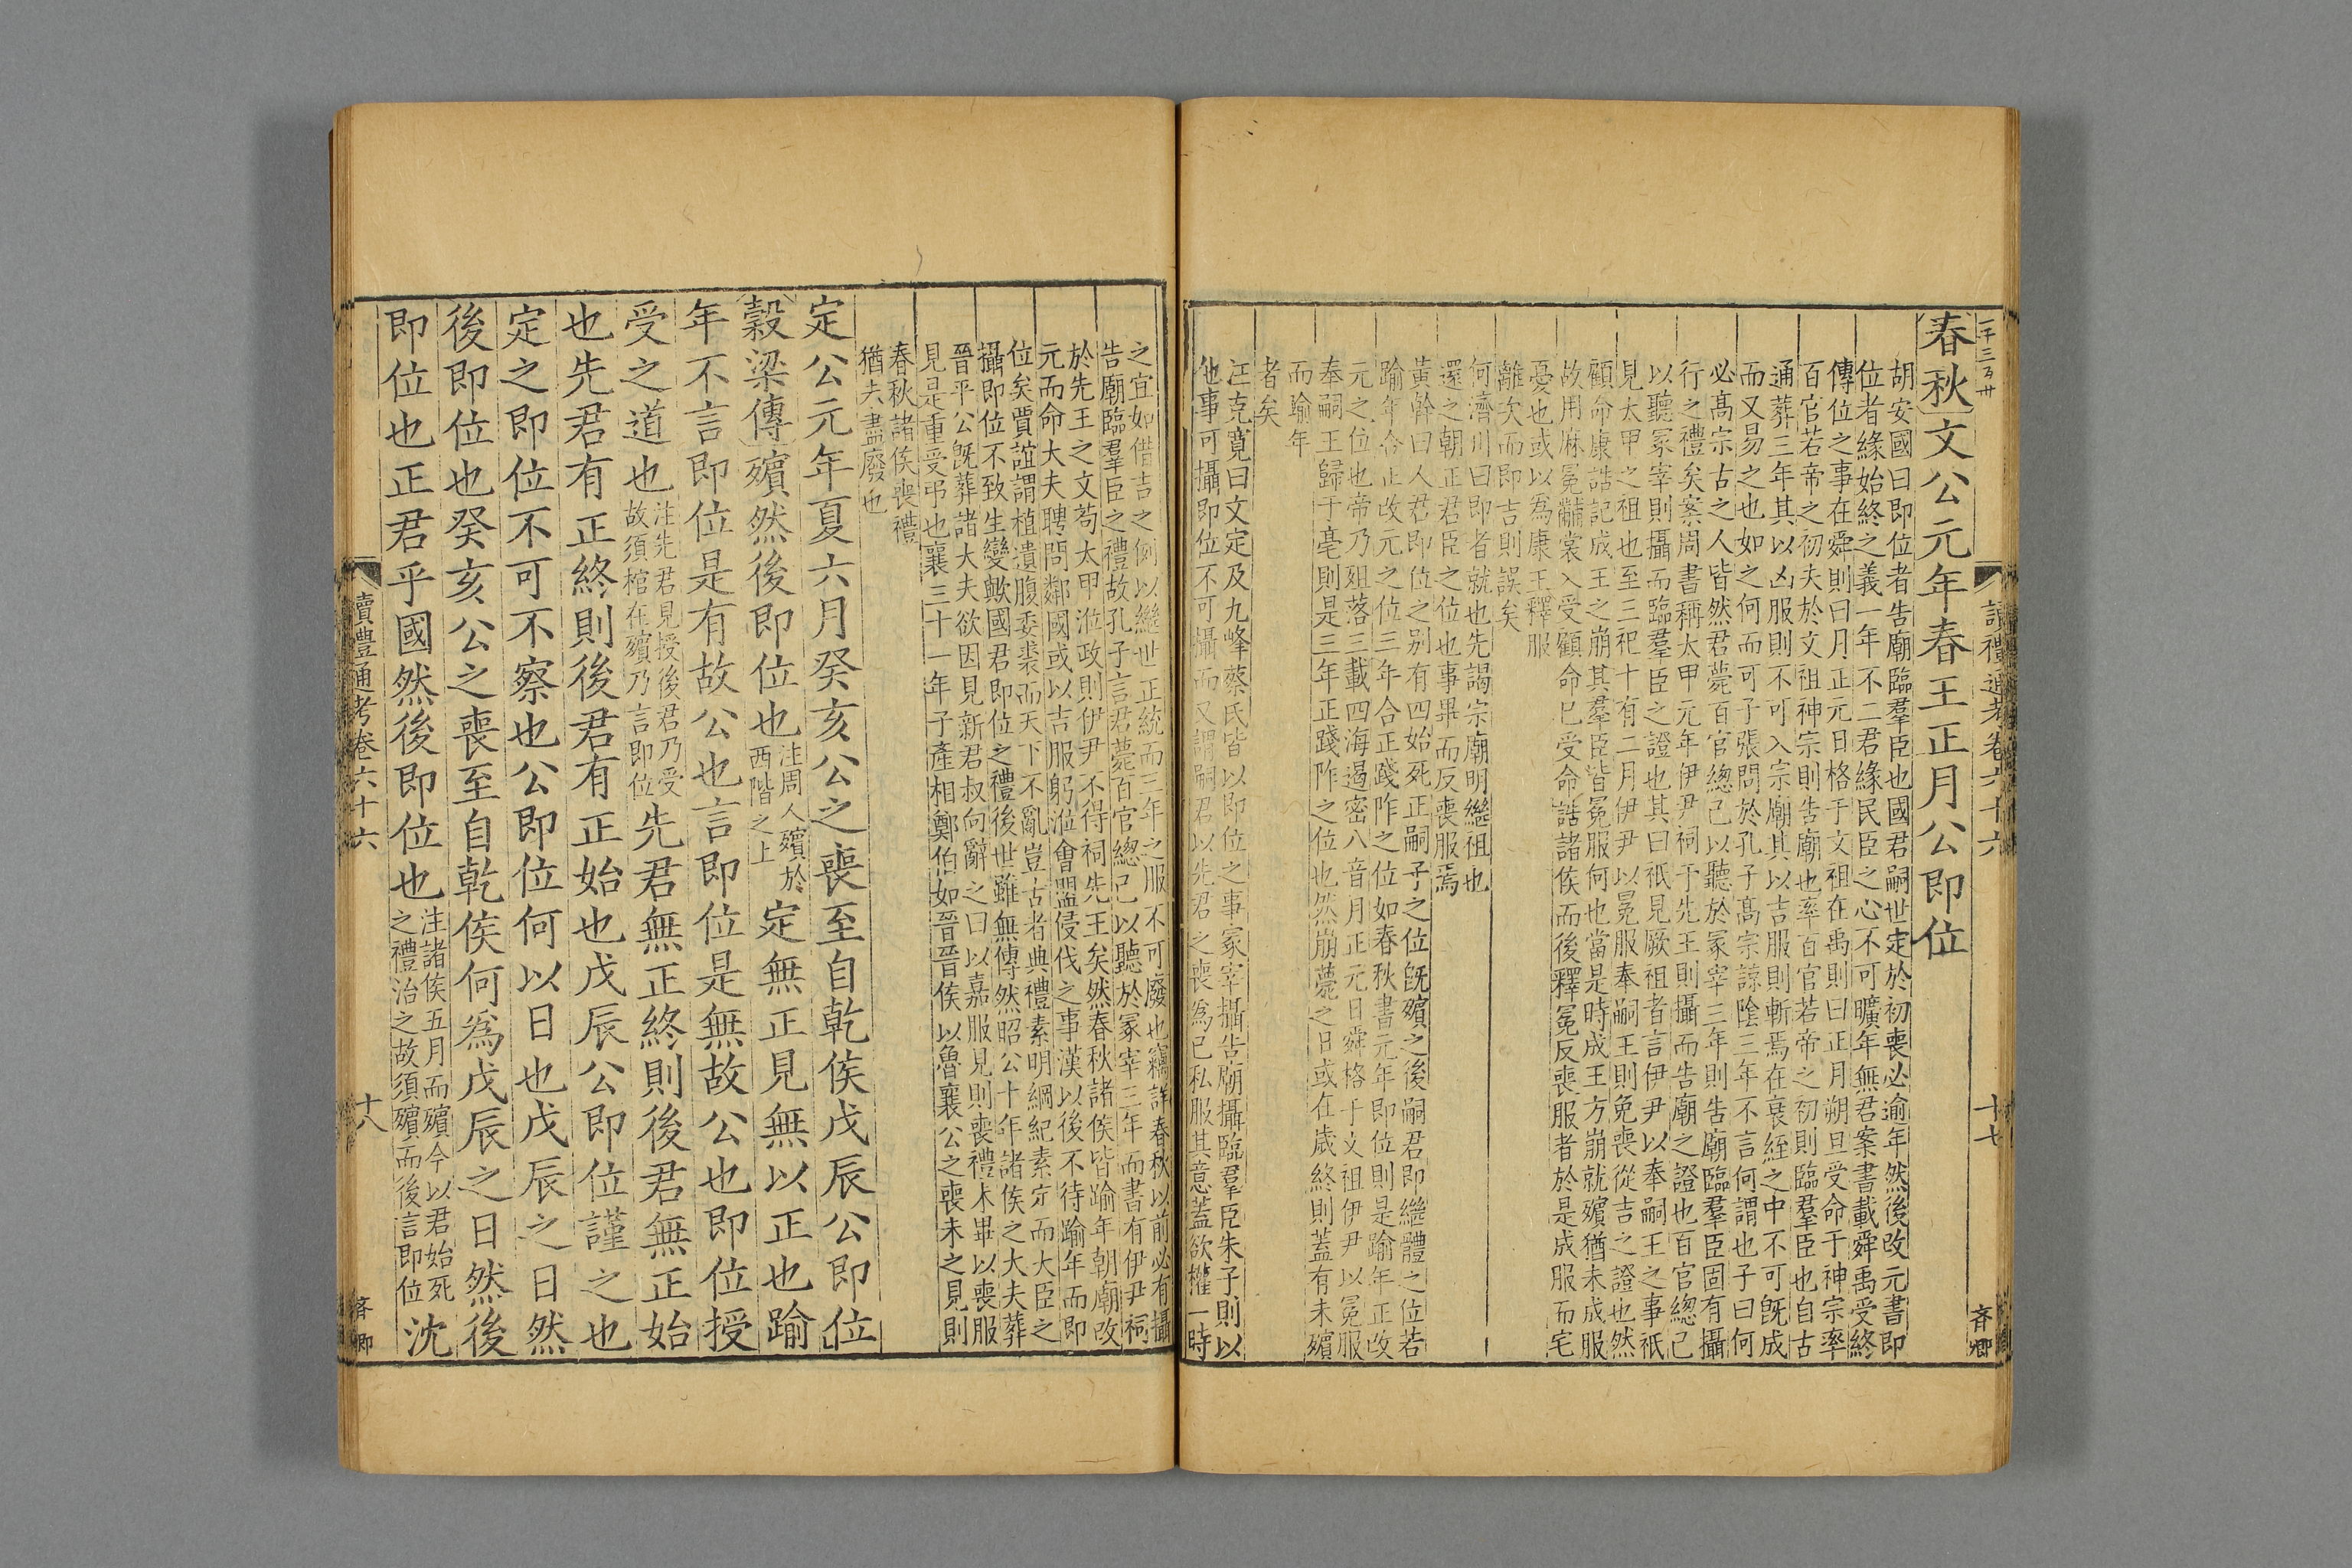 一千三百廿
讀禮通考卷六十六
十七
吝卿
春秋文公元年春王正月公即位
胡安國曰即位者告廟臨羣臣也國君嗣世定於初喪必逾年然後改元書即
位者緣始終之義一年不二君緣民臣之心不可曠年無君案書載舜禹受終
傳位之事在舜則曰月正元日格于文祖在禹則曰正月朔旦受命于神宗率
百官若帝之初夫於文祖神宗則告廟也率百官若帝之初則臨羣臣也自古
通葬三年其以凶服則不可入宗廟其以吉服則斬焉在衰絰之中不可旣成
而又易之也如之何而可子張問於孔子高宗諒陰三年不言何謂也子曰何
必高宗古之人皆然君薨百官總己以聽於冢宰三年則告廟臨羣臣固有攝
行之禮矣案周書稱太甲元年伊尹祠于先王則攝而告廟之證也百官總己
以聽冢宰則攝而臨羣臣之證也其曰祇見厥祖者言伊尹以奉嗣王之事祇
見太甲之祖也至三祀十有二月伊尹以冕服奉嗣王則免喪從吉之證也然
顧命康誥記成王之崩其羣臣皆冕服何也當是時成王方崩就殯猶未成服
故用麻冕黼裳入受顧命已受命誥諸侯而後釋冕反喪服者於是成服而宅
憂也或以爲康王釋服
離次而即吉則誤矣
何濟川曰即者就也先謁宗廟明繼祖也
還之朝正君臣之位也事畢而反喪服焉
黃幹曰人君即位之别有四始死正嗣子之位旣殯之後嗣君即繼體之位若
踰年合正改元之位三年合正踐阼之位如春秋書元年即位則是踰年正改
元之位也帝乃殂落三載四海遏密八音月正元日舜格于文祖伊尹以冕服
奉嗣王歸于亳則是三年正踐阼之位也然崩薨之日或在歲終則蓋有未殯
而踰年
者矣
汪克寬曰文定及九峰蔡氏皆以即位之事冢宰攝告廟攝臨羣臣朱子則以
他事可攝即位不可攝而又謂嗣君以先君之喪爲己私服其意蓋欲權一時
之宜如借吉之例以繼世正統而三年之服不可廢也竊詳春秋以前必有攝
告廟臨羣臣之禮故孔子言君薨百官總己以聽於冢宰三年而書有伊尹祠
於先王之文苟太甲涖政則伊尹不得祠先王矣然春秋諸侯皆踰年朝廟改
元而命大夫聘問鄰國或以吉服躬涖會盟侵伐之事漢以後不待踰年而即
位矣賈誼謂植遺腹委裘而天下不亂豈古者典禮素明綱紀素定而大臣之
攝即位不致生變歟國君即位之禮後世雖無傳然昭公十年諸侯之大夫葬
晉平公旣葬諸大夫欲因見新君叔向辭之曰以嘉服見則喪禮未畢以喪服
見是重受弔也襄三十一年子產相鄭伯如晉晉侯以魯襄公之喪未之見則
春秋諸侯喪禮
猶夫盡廢也
定公元年夏六月癸亥公之喪至自乾侯戊辰公即位
穀梁傳殯然後即位也注周人殯於西階之上定無正見無以正也踰
年不言即位是有故公也言即位是無故公也即位授
受之道也注先君見授後君乃受故須棺在殯乃言即位先君無正終則後君無正始
也先君有正終則後君有正始也戊辰公即位謹之也
定之即位不可不察也公即位何以日也戊辰之日然
後即位也癸亥公之喪至自乾侯何爲戊辰之日然後
即位也正君乎國然後即位也注諸侯五月而殯今以君始死之禮治之故須殯而後言即位沈
讀禮通考卷六十六
十八
吝卿